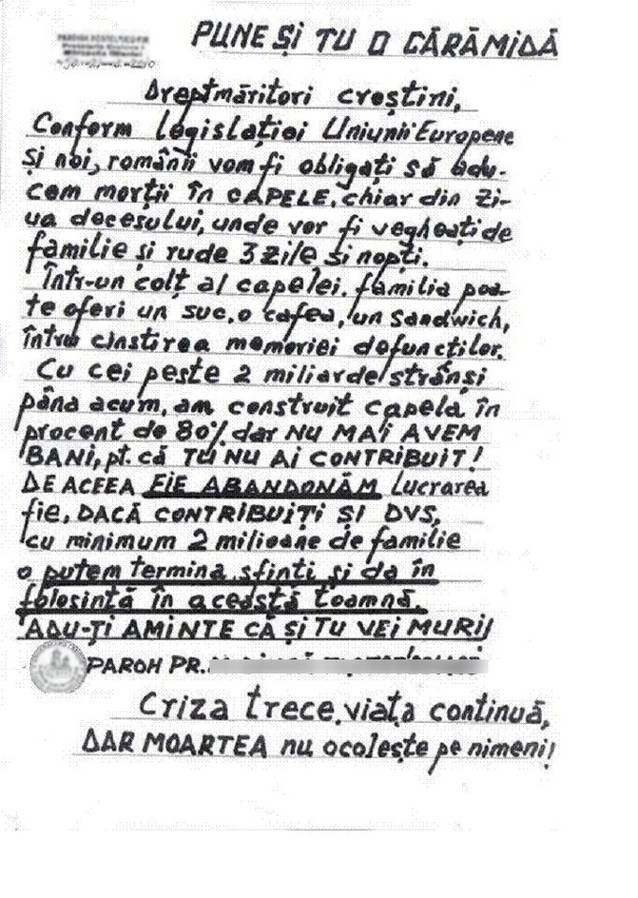 PUNE ȘI TU O CĂRĂMIDĂ
Dreptmăritori creștini,
Conform legislației Uniunii Europene
și noi, românii vom fi obligați să adu-
cem morții în CAPELE, chiar din zi-
ua decesului, unde vor fi vegheați de
familie și rude 3 zile și nopți.
Într-un colț al capelei, familia poa-
te oferi un suc, o cafea, un sandwich,
întru cinstirea memoriei defuncților.
Cu cei peste 2 miliarde strânși
până acum, am construit capela în
procent de 80% dar NU MAI AVEM
BANI, pt. că TU NU AI CONTRIBUIT!
DE ACEEA FIE ABANDONĂM lucrarea
fie, DACĂ CONTRIBUIȚI ȘI DVS,
cu minimum 2 milioane de familie
o putem termina, sfinți și da în
folosință în această toamnă.
ADU-ȚI AMINTE CĂ ȘI TU VEI MURI!
PAROH PR.
Criza trece, viața continuă,
DAR MOARTEA nu ocolește pe nimeni!